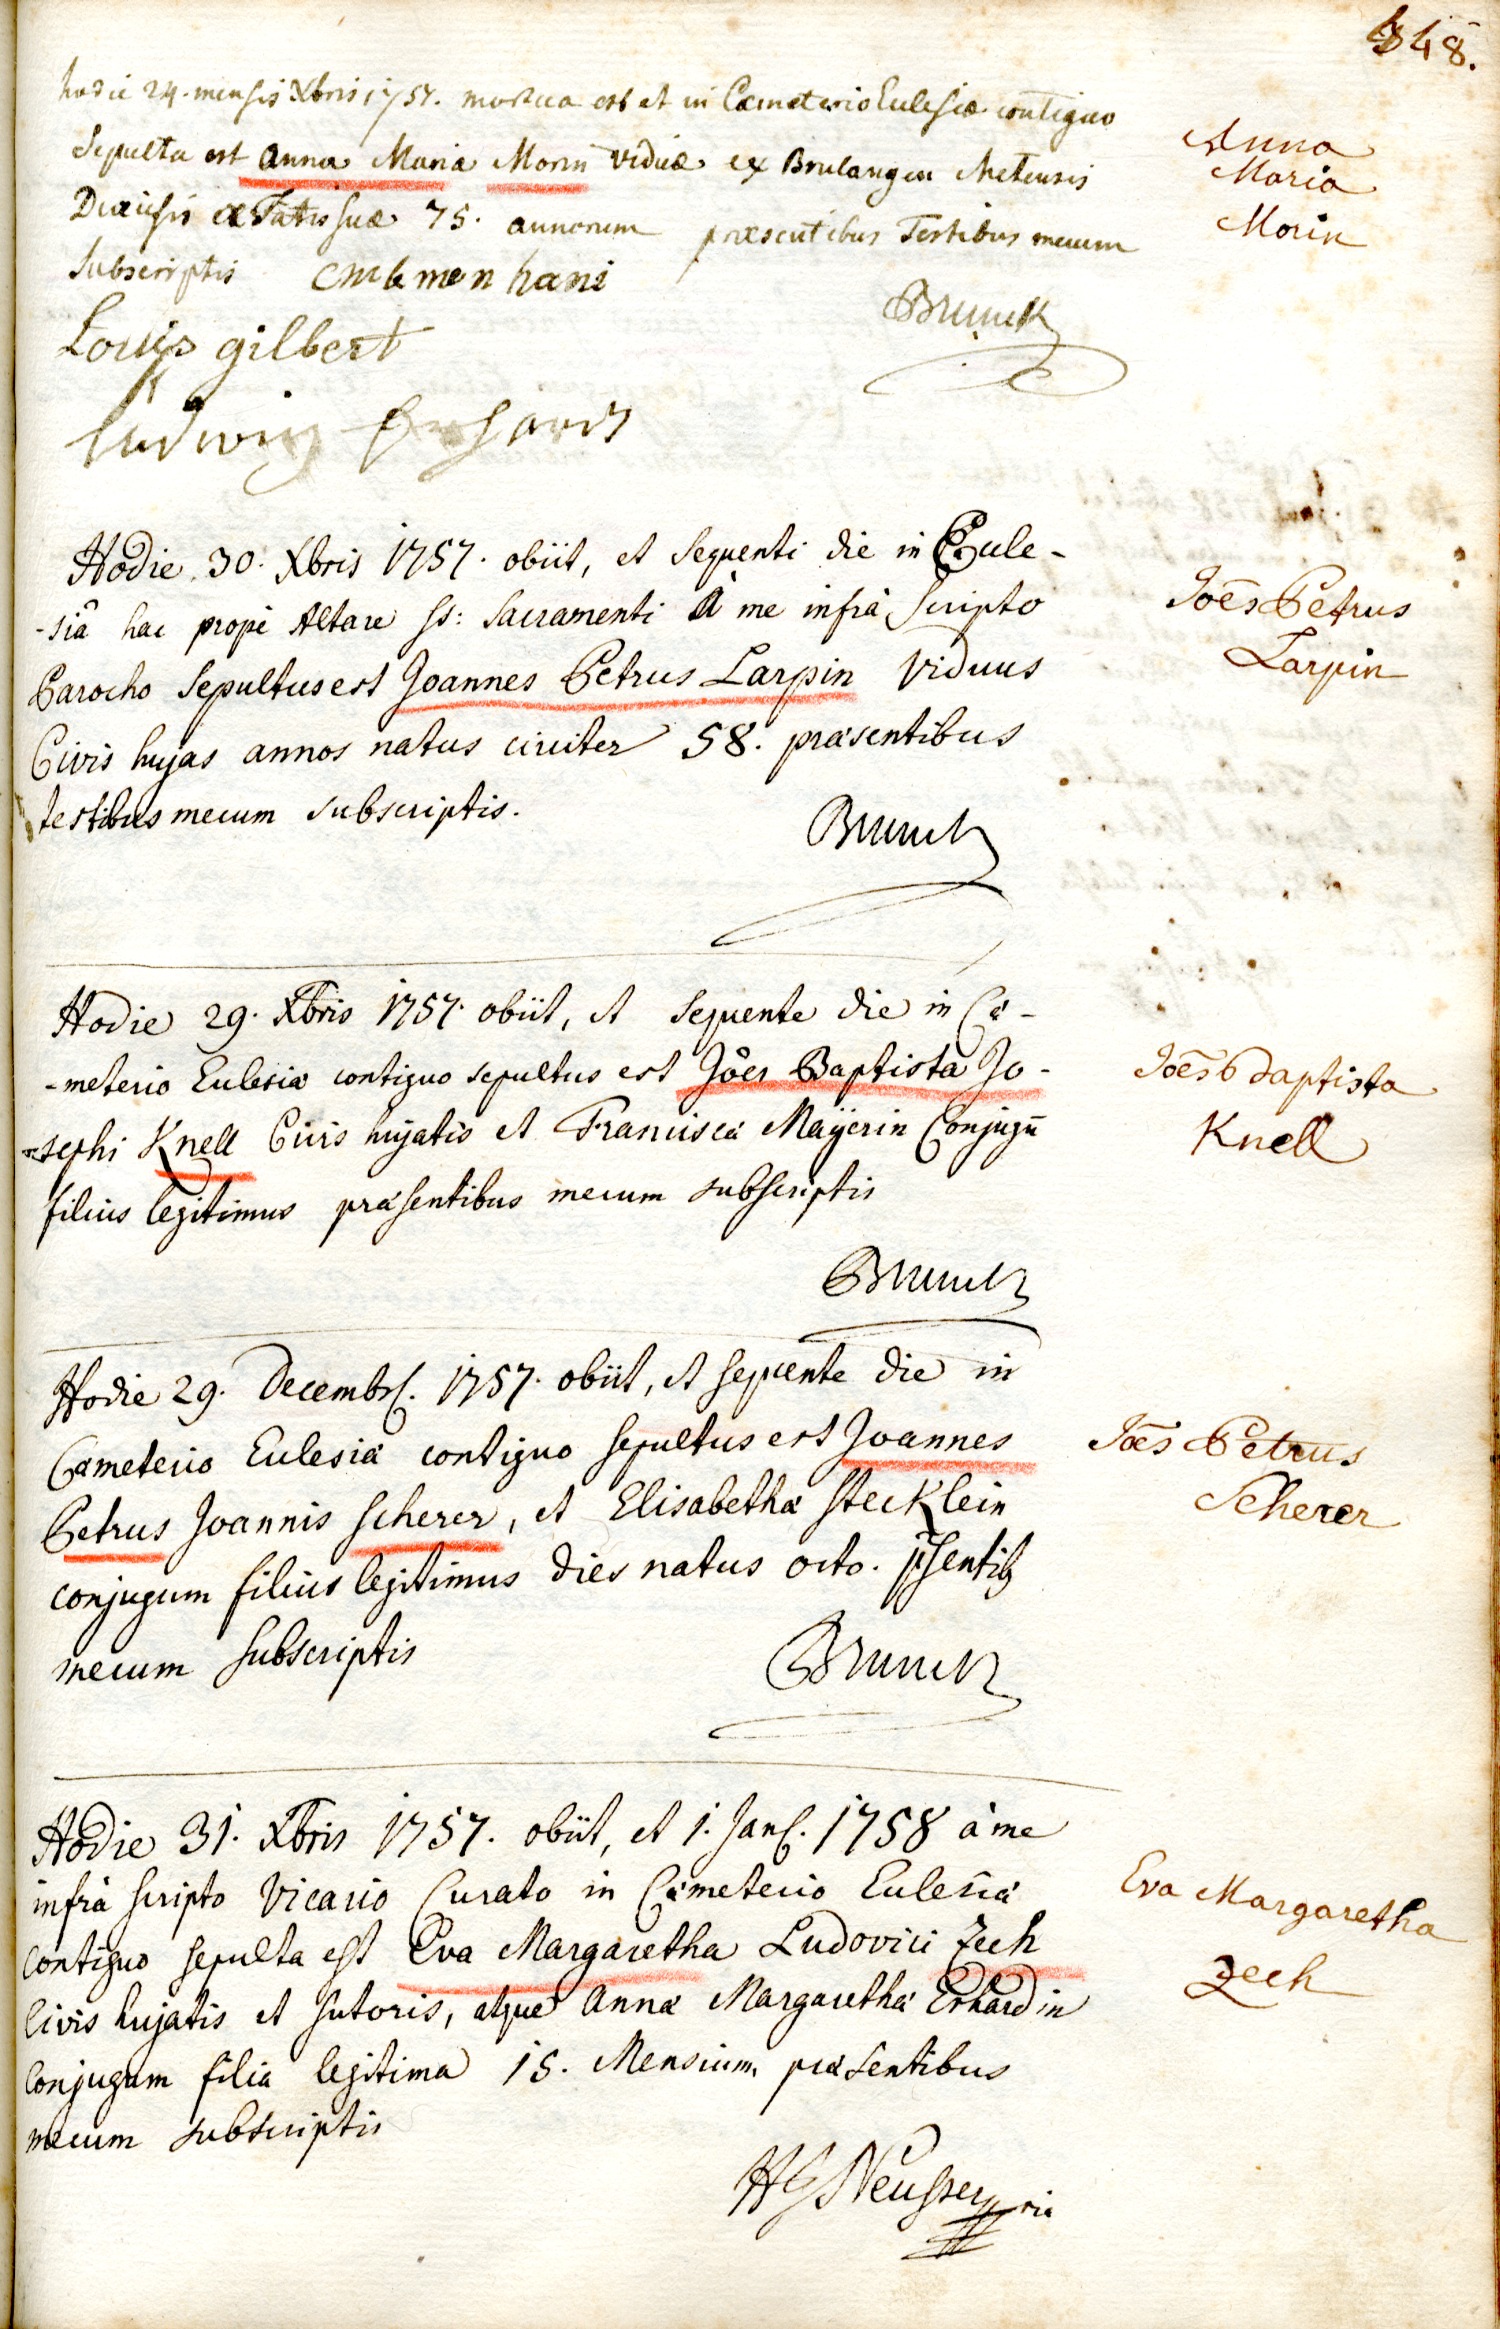 348.
hodie 24. mensis Xbris 1757. mortua est et in Cæmeterio Ecclesiæ contiguo
Sepulta est Anna Maria Morin viduæ ex Brulangen Metensis
Diæcesis ætatis suæ 75. annorum præsentibus Testibus mecum
Subscriptis
Anna
Maria
Morin
Brunck
Louis gilbert
Ludwig Erhardt
Hodie 30. Xbris 1757. obiit, et sequenti die in Eccle-
-siâ hac propè Altare SS: Sacramenti à me infrà scripto
Parocho Sepultus est Joannes Petrus Larpin viduus
Civis hujas annos natus circiter 58. præsentibus
testibus mecum subscriptis.
Joēs Petrus
Larpin
Brunck
Hodie 29. Xbris 1757. obiit, et sequente die in Cæ-
-meterio Ecclesiæ contiguo sepultus est Joēs Baptista Jo-
-sephi Knell Civis hujatis et Franciscæ Mayerin Conjugū
filius legitimus præsentibus mecum subscriptis
Joēs Baptista
Knell
Brunck
Hodie 29. Decembr. 1757. obiit, et sequente die in
Cæmeterio Ecclesiæ contiguo sepultus est Joannes
Petrus Joannis Scherer, et Elisabethæ Stecklein
conjugum filius legitimus dies natus octo. p̄sentib9
mecum subscriptis
Joēs Petrus
Scherer
Brunck
Hodie 31. Xbris 1757. obiit, et 1. Jan. 1758 à me
infrà scripto Vicario Curato in Cæmeterio Ecclesiæ
contiguo sepulta est Eva Margaretha Ludovici Zech
Civis hujatis et sutoris, atque Annæ Margarethæ Erhardin
Conjugum filia legitima 15. Mensium præsentibus
mecum subscriptis
Eva Margaretha
Zech
HG Neusser